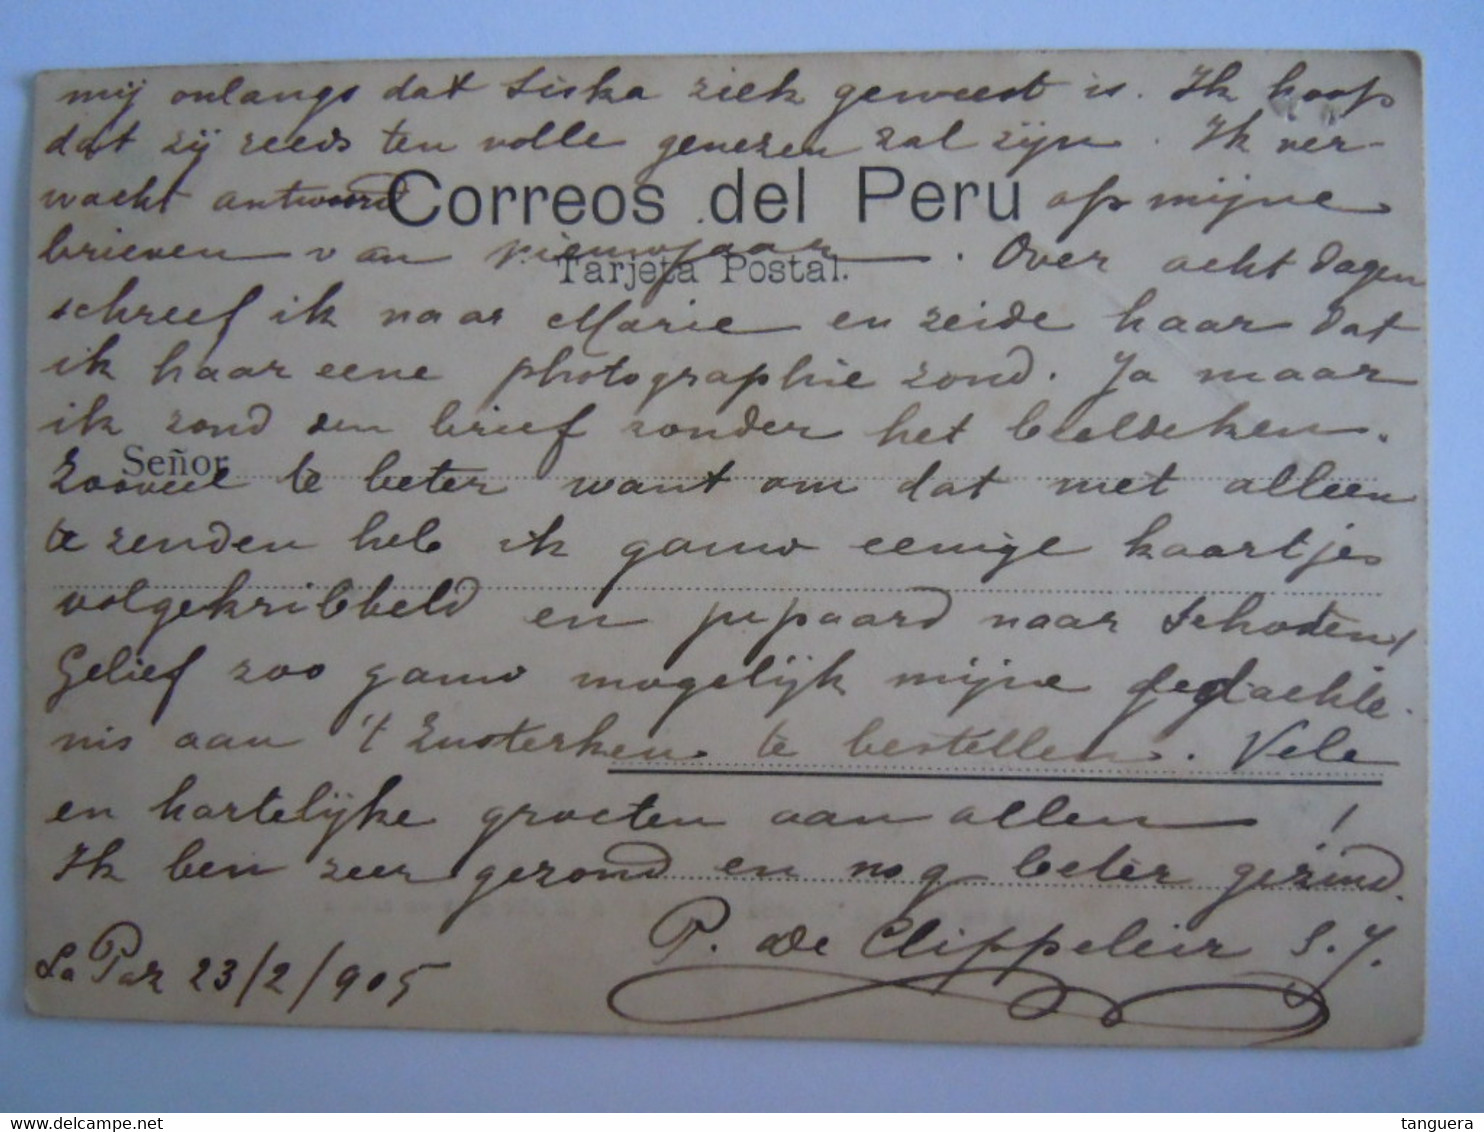 mij onlangs dat Siska ziek geweest is. Ik hoop
dat zij reeds ten volle genezen zal zijn. Ik ver-
wacht antwoord op mijne
Correos del Perú
brieven van nieuwjaar. Over acht dagen
Tarjeta Postal.
schreef ik naar Marie en zeide haar dat
ik haar eene photographie zond. Ja maar
ik zond den brief zonder het beeldeken.
Señor
Zooveel te beter want om dat niet alleen
te zenden heb ik gauw eenige kaartjes
volgekribbeld en naar Schoten!
Gelief zoo gauw mogelijk mijne gedachte-
nis aan 't Zusterken te bestellen. Vele
en hartelijke groeten aan allen!
Ik ben zeer gezond en nog beter gezind.
P. De Clippeleir S.J.
La Paz 23/2/905
tanguera